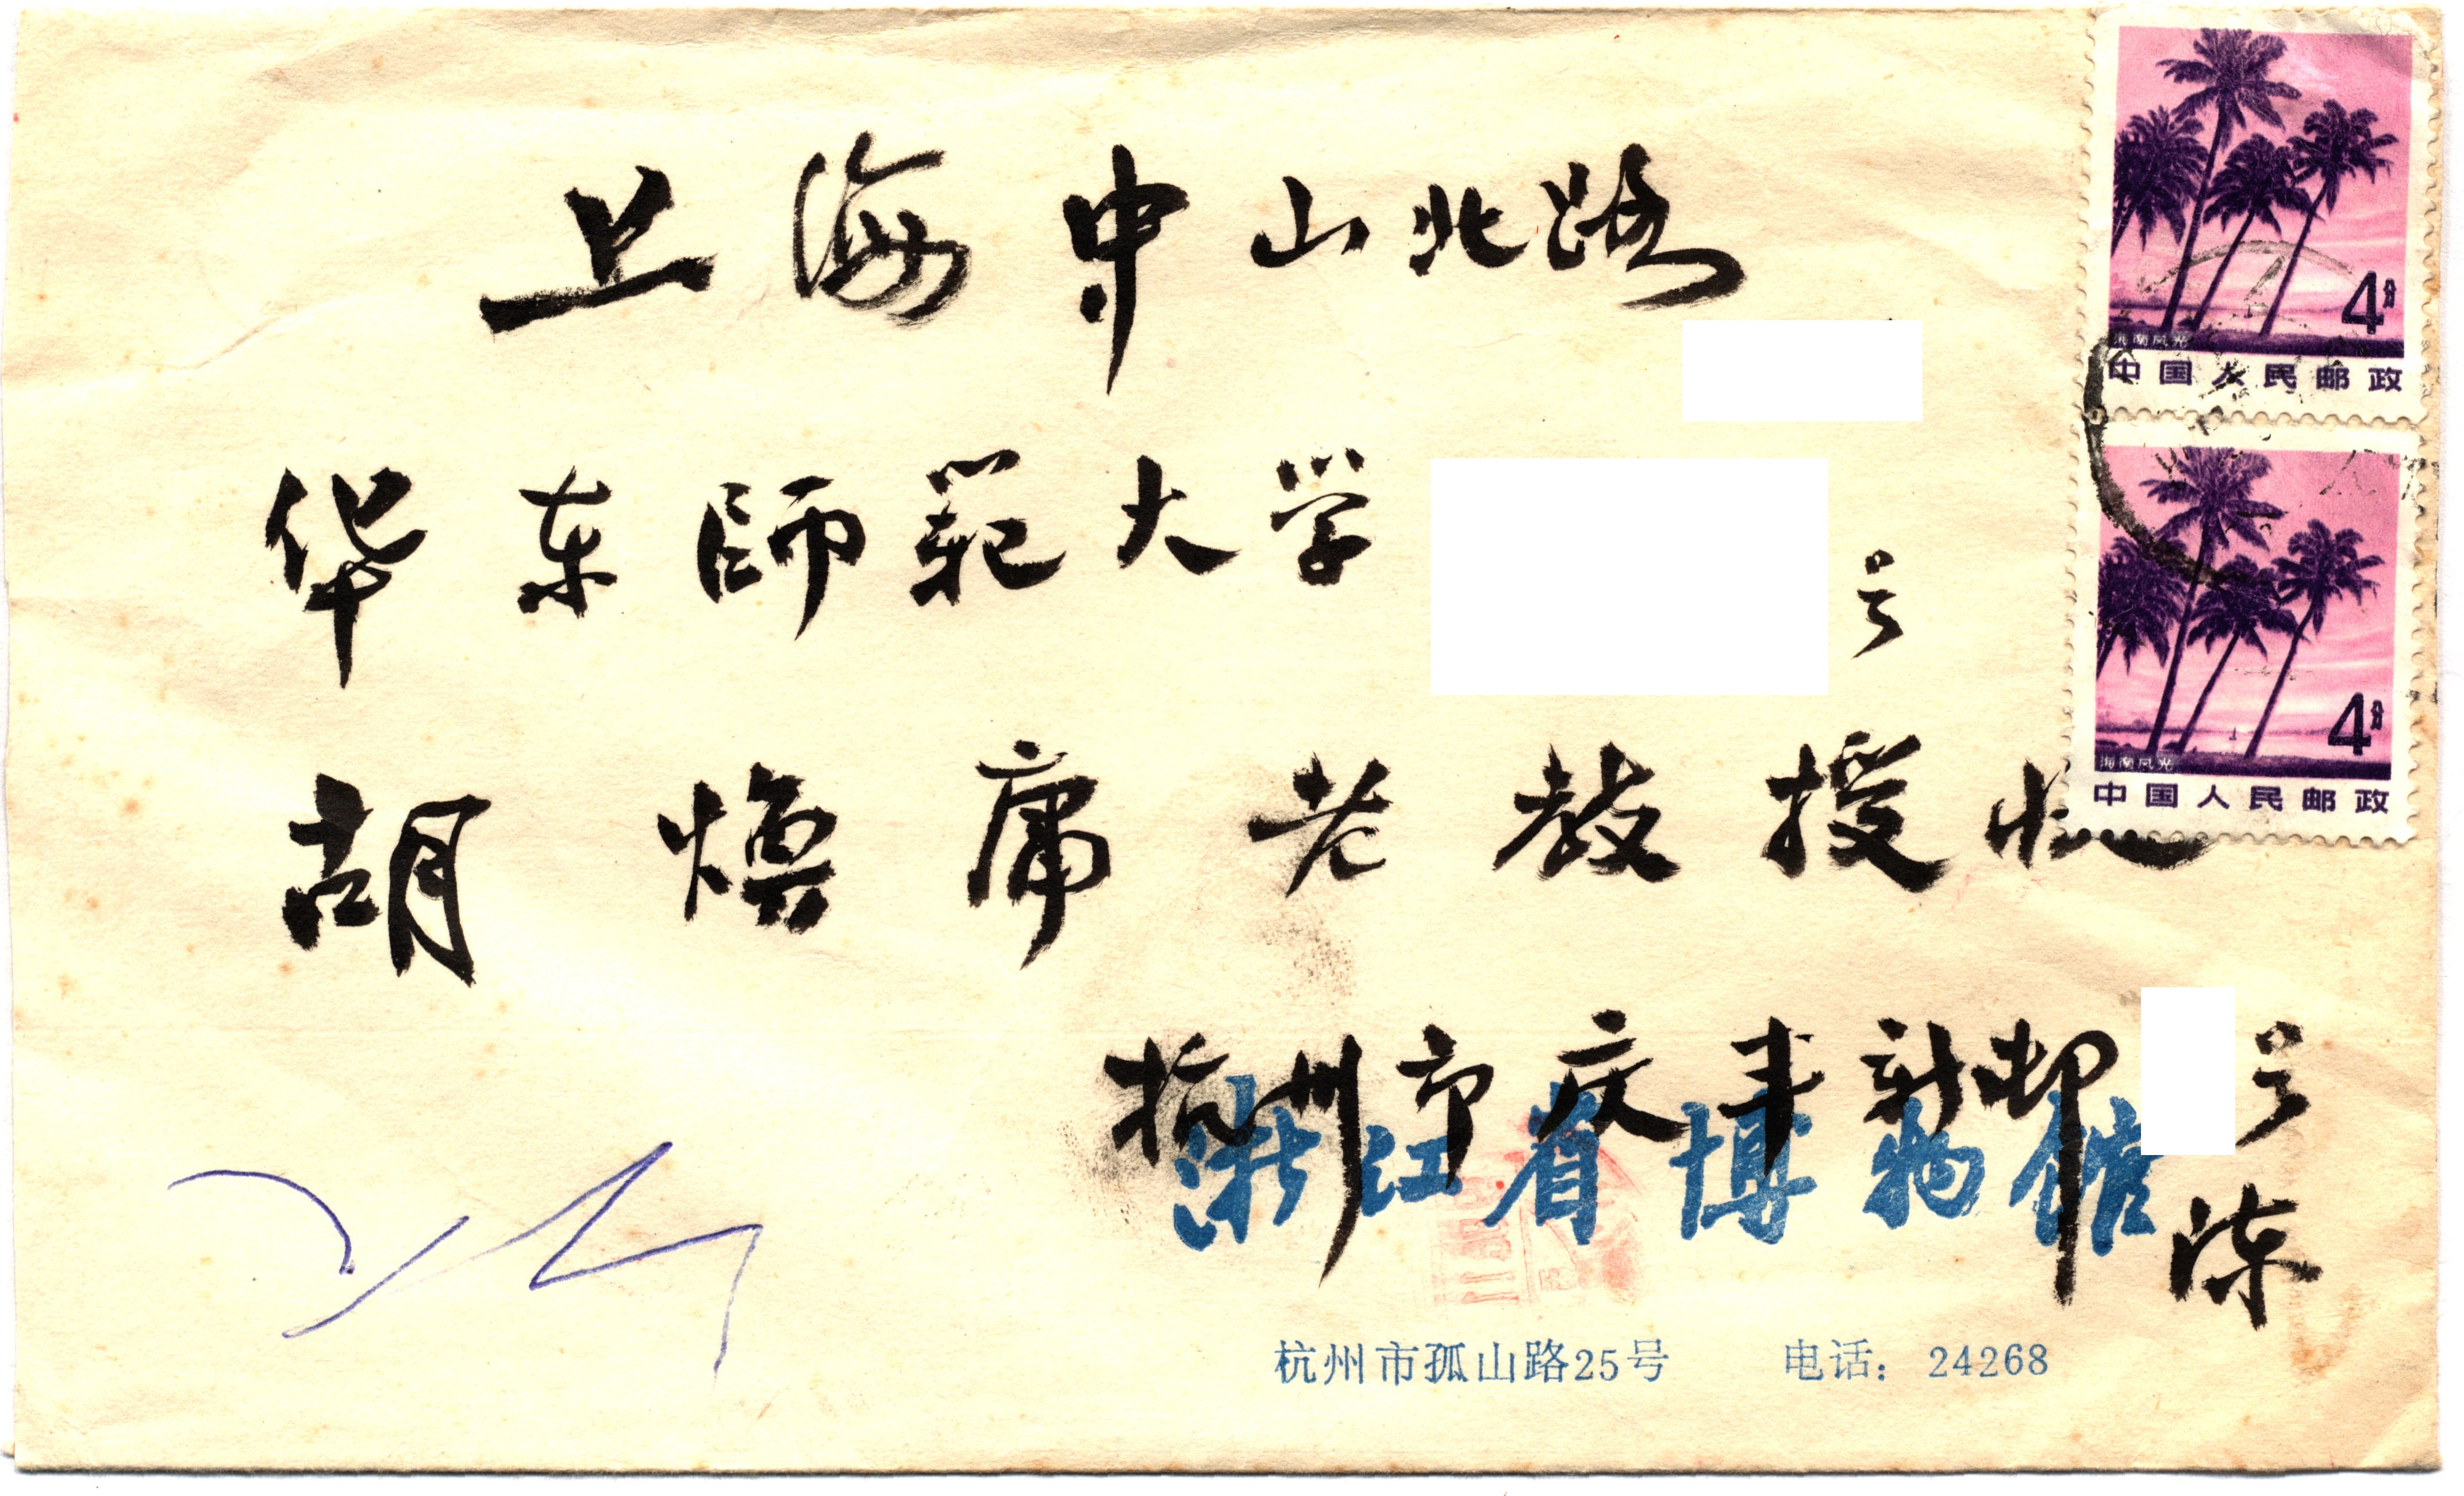 上海中山北路
华东师范大学 号
胡焕庸老教授收
杭州市庆丰新邨 号
陈
浙江省博物馆
杭州市孤山路25号 电话：24268
4分
海南风光
中国人民邮政
4分
海南风光
中国人民邮政